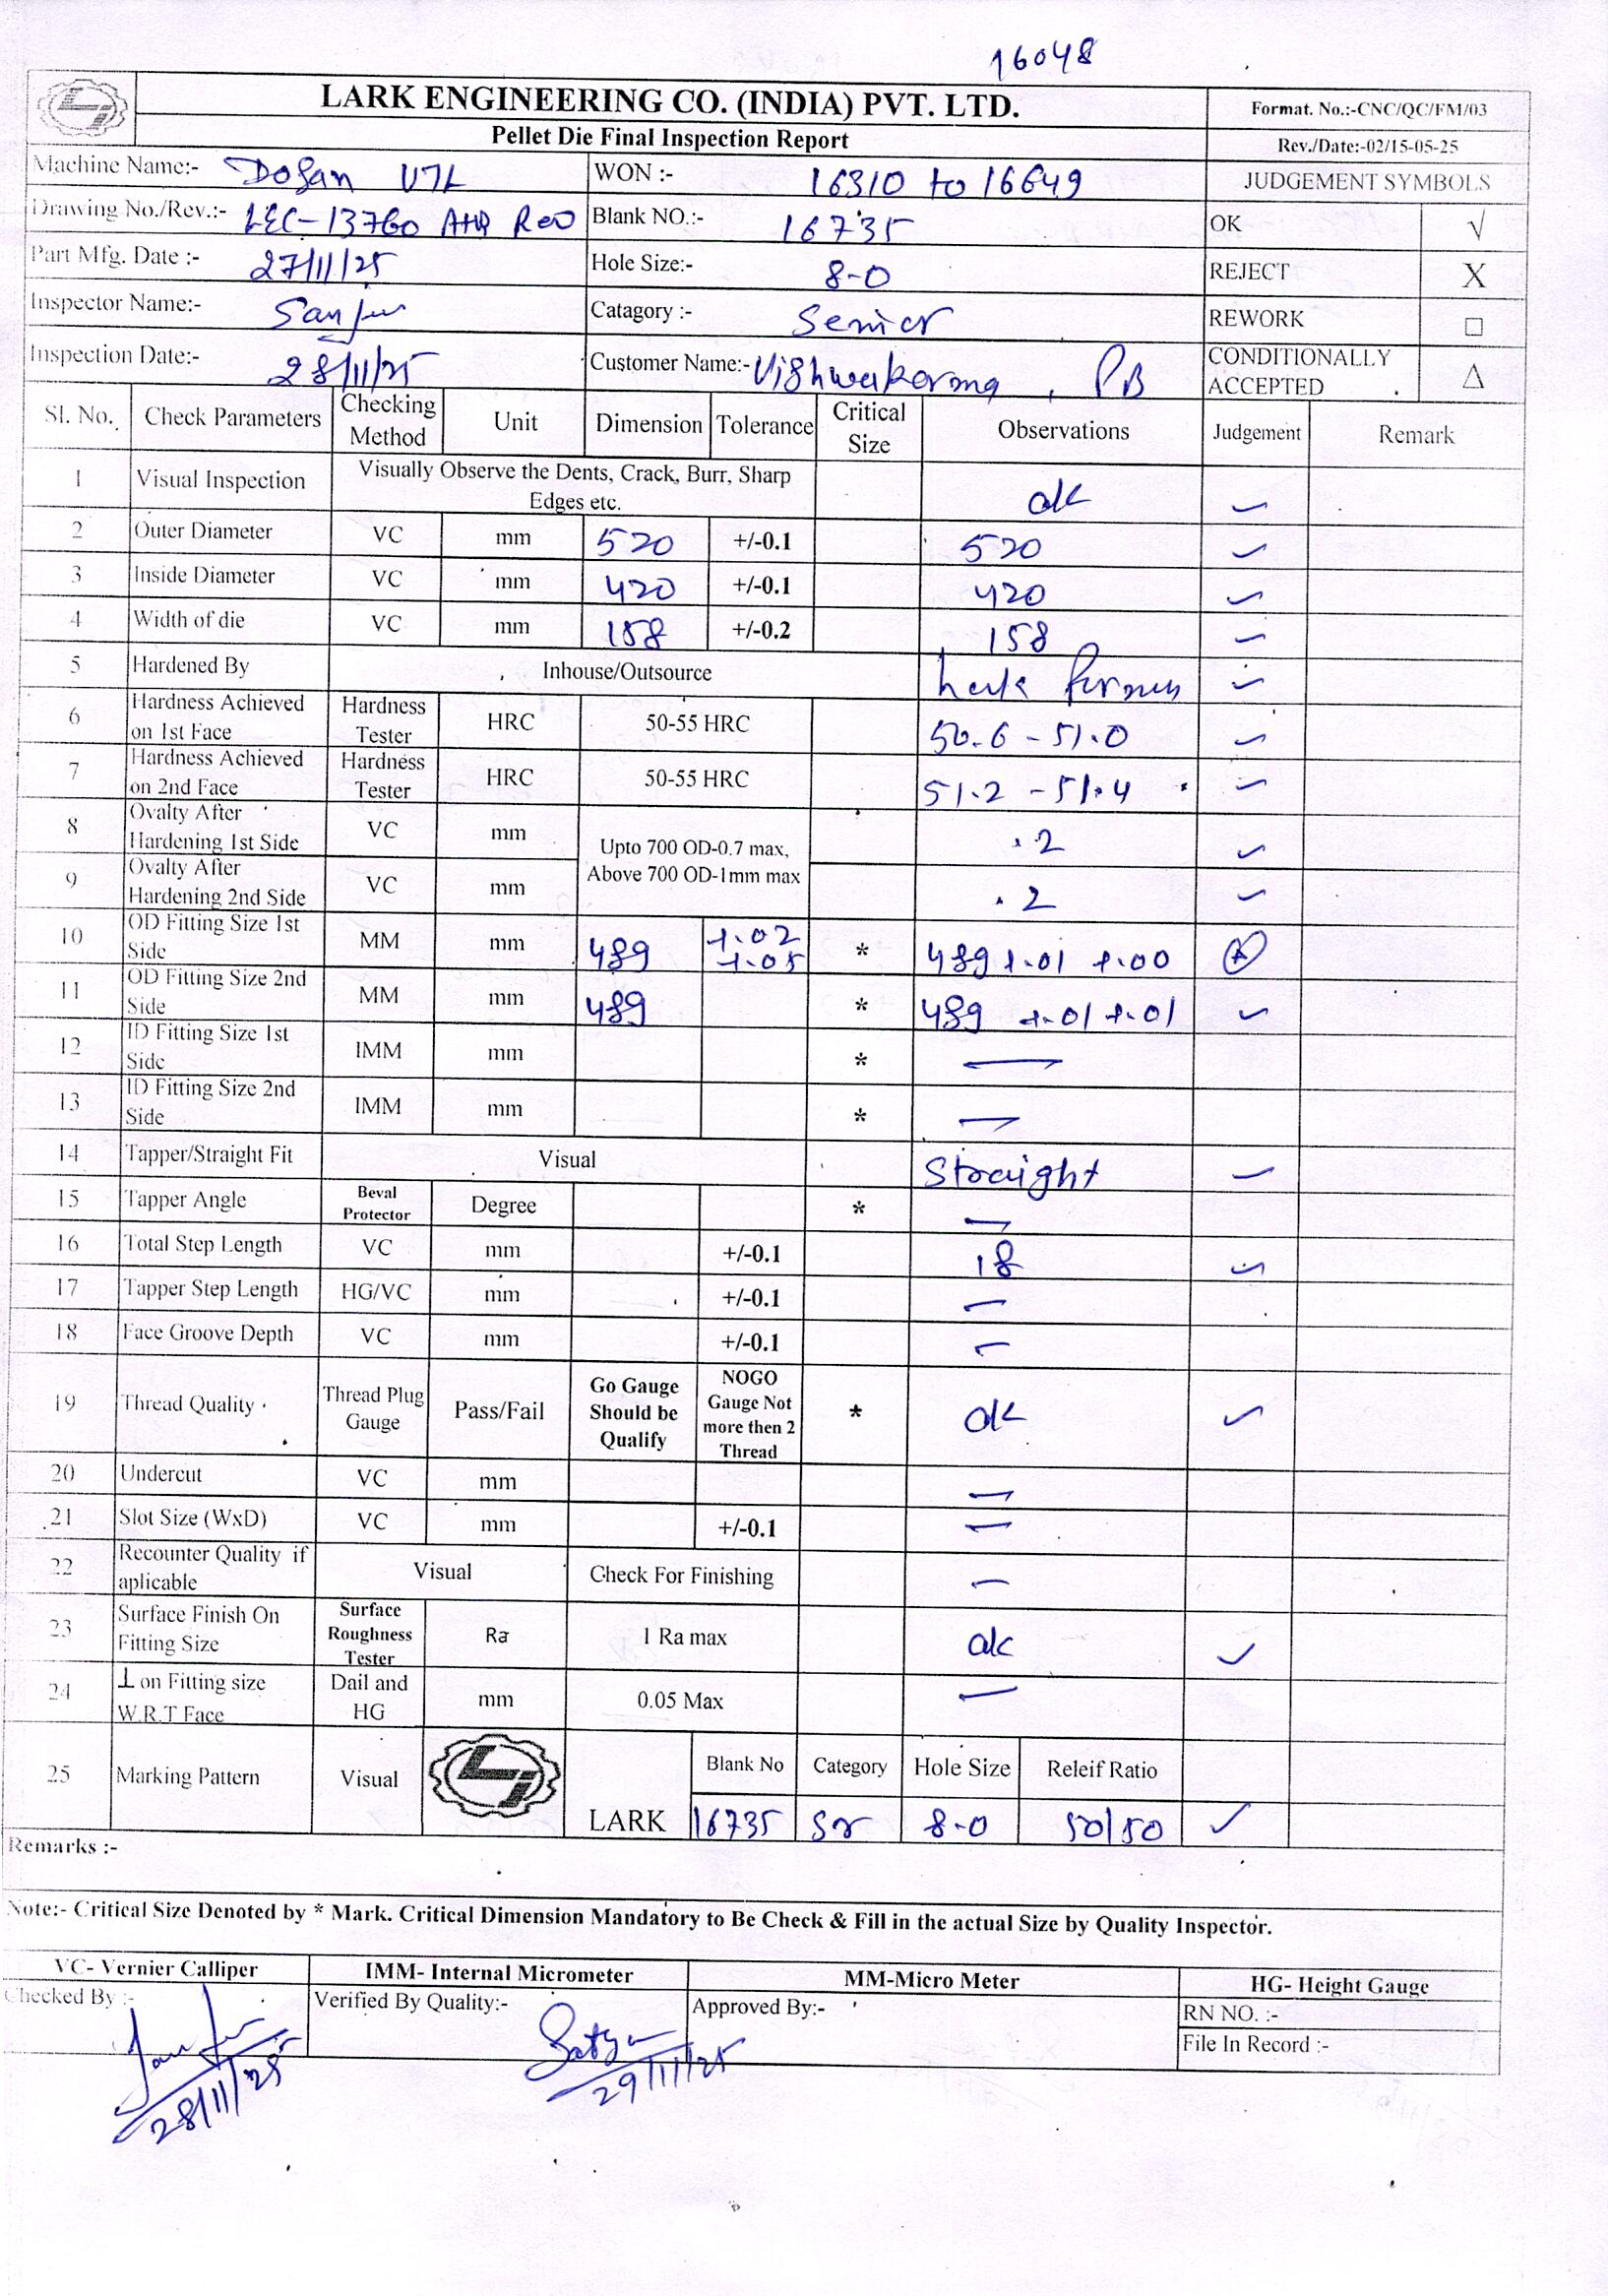 16048
LARK ENGINEERING CO. (INDIA) PVT. LTD.
Format. No.:-CNC/QC/FM/03
Pellet Die Final Inspection Report
Rev./Date:-02/15-05-25
Machine Name:- Dosan VTL WON :- 16310 to 16649 JUDGEMENT SYMBOLS
Drawing No./Rev.:- LEC-13760 Blank NO.:- 16735 OK √
Part Mfg. Date :- 27/11/25 Hole Size:- 8-0 REJECT X
Inspector Name:- Sanju Catagory :- Senior REWORK □
Inspection Date:- 28/11/25 Customer Name:- Vishwakarma, PB CONDITIONALLY ACCEPTED Δ
Sl. No. Check Parameters Checking Method Unit Dimension Tolerance Critical Size Observations Judgement Remark
1 Visual Inspection Visually Observe the Dents, Crack, Burr, Sharp Edges etc. ok ✓
2 Outer Diameter VC mm 520 +/-0.1 520 ✓
3 Inside Diameter VC mm 420 +/-0.1 420 ✓
4 Width of die VC mm 158 +/-0.2 158 ✓
5 Hardened By Inhouse/Outsource ✓
6 Hardness Achieved on 1st Face Hardness Tester HRC 50-55 HRC 50.6 - 51.0 ✓
7 Hardness Achieved on 2nd Face Hardness Tester HRC 50-55 HRC 51.2 - 51.4 ✓
8 Ovalty After Hardening 1st Side VC mm Upto 700 OD-0.7 max, Above 700 OD-1mm max .2 ✓
9 Ovalty After Hardening 2nd Side VC mm .2 ✓
10 OD Fitting Size 1st Side MM mm 489 +.02 +.05 * 489 +.01 +.00
11 OD Fitting Size 2nd Side MM mm 489 * 489 +.01 +.01 ✓
12 ID Fitting Size 1st Side IMM mm * —
13 ID Fitting Size 2nd Side IMM mm * —
14 Tapper/Straight Fit Visual Straight ✓
15 Tapper Angle Beval Protector Degree * —
16 Total Step Length VC mm +/-0.1 18 ✓
17 Tapper Step Length HG/VC mm +/-0.1 —
18 Face Groove Depth VC mm +/-0.1 —
19 Thread Quality Thread Plug Gauge Pass/Fail Go Gauge Should be Qualify NOGO Gauge Not more then 2 Thread * ok ✓
20 Undercut VC mm —
21 Slot Size (WxD) VC mm +/-0.1 —
22 Recounter Quality if aplicable Visual Check For Finishing —
23 Surface Finish On Fitting Size Surface Roughness Tester Ra 1 Ra max ok ✓
24 ⊥ on Fitting size W.R.T Face Dail and HG mm 0.05 Max —
25 Marking Pattern Visual LARK Blank No Category Hole Size Releif Ratio
16735 Sr 8-0 50/50 ✓
Remarks :-
Note:- Critical Size Denoted by * Mark. Critical Dimension Mandatory to Be Check & Fill in the actual Size by Quality Inspector.
VC- Vernier Calliper IMM- Internal Micrometer MM-Micro Meter HG- Height Gauge
Checked By :- Verified By Quality:- Approved By:- RN NO. :-
File In Record :-
Sanju Satya
28/11/25 29/11/25